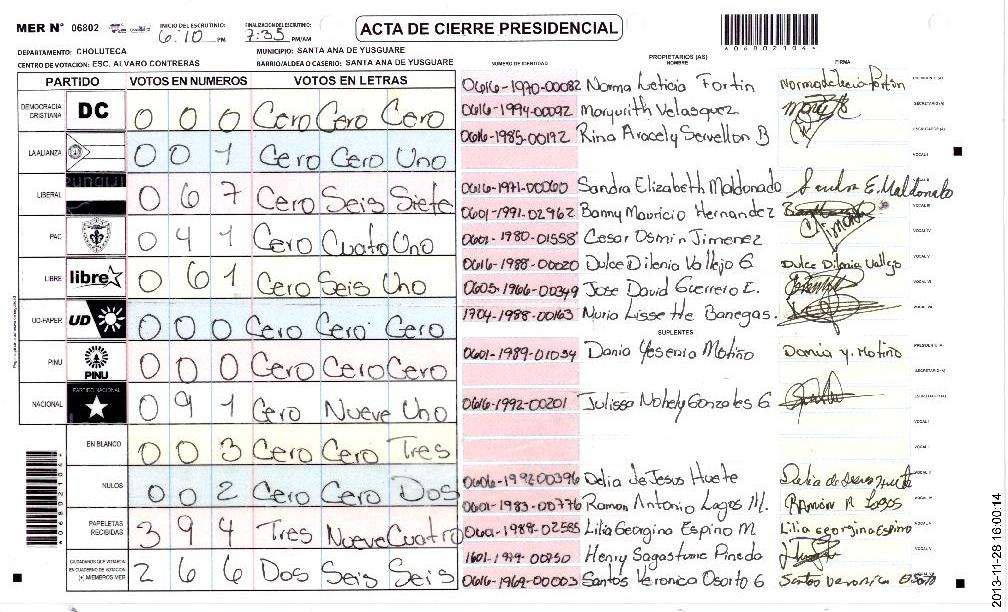 MER N° 06802 INICIO DEL ESCRUTINIO: 6:10 PM FINALIZACIÓN DEL ESCRUTINIO: 7:35 PM/AM ACTA DE CIERRE PRESIDENCIAL
DEPARTAMENTO: CHOLUTECA MUNICIPIO: SANTA ANA DE YUSGUARE
CENTRO DE VOTACION: ESC. ALVARO CONTRERAS BARRIO/ALDEA O CASERIO: SANTA ANA DE YUSGUARE
PARTIDO VOTOS EN NUMEROS VOTOS EN LETRAS
DEMOCRACIA CRISTIANA DC 0 0 0 Cero Cero Cero
LA ALIANZA 0 0 1 Cero Cero Uno
LIBERAL 0 6 7 Cero Seis Siete
PAC 0 4 1 Cero Cuatro Uno
LIBRE libre 0 6 1 Cero Seis Uno
UD-FAPER UD 0 0 0 Cero Cero Cero
PINU PINU 0 0 0 Cero Cero Cero
NACIONAL PARTIDO NACIONAL 0 9 1 Cero Nueve Uno
EN BLANCO 0 0 3 Cero Cero Tres
NULOS 0 0 2 Cero Cero Dos
PAPELETAS RECIBIDAS 3 9 4 Tres Nueve Cuatro
CIUDADANOS QUE VOTARON EN CUADERNO DE VOTACION (+) MIEMBROS MER 2 6 6 Dos Seis Seis
0 6 8 0 2 1 0 4 4
NUMERO DE IDENTIDAD PROPIETARIOS (AS) NOMBRE FIRMA
0616-1970-00082 Norma Leticia Fortin Norma Leticia Fortin
0616-1994-00092 Margarith Velasquez
0616-1985-00192 Rina Aracely Servellon B
VOCAL I
0616-1971-00060 Sandra Elizabeth Maldonado Sandra E. Maldonado
0601-1991-02962 Banny Mauricio Hernandez
0601-1980-01558 Cesar Osmin Jimenez
0616-1988-00020 Dulce Dilenia Vallejo G. Dulce Dilenia Vallejo
0605-1966-00349 Jose David Guerrero E.
1704-1988-00163 Nuria Lissethe Banegas.
SUPLENTES
0601-1989-01034 Dania Yesenia Motiño Dania y. Motiño
0616-1992-00201 Julissa Nohely Gonzales G
0606-1992-00396 Delia de Jesus Huete Delia de Jesus Huete
0601-1983-00776 Ramon Antonio Lagos M. Ramón A Lagos
0601-1989-02585 Lilia Georgina Espino M. Lilia georgina Espino
1601-1979-00950 Henry Sagastume Pineda
0616-1969-00003 Santos Veronica Osorto G Santos Veronica Osorto
2013-11-28 16:00:14